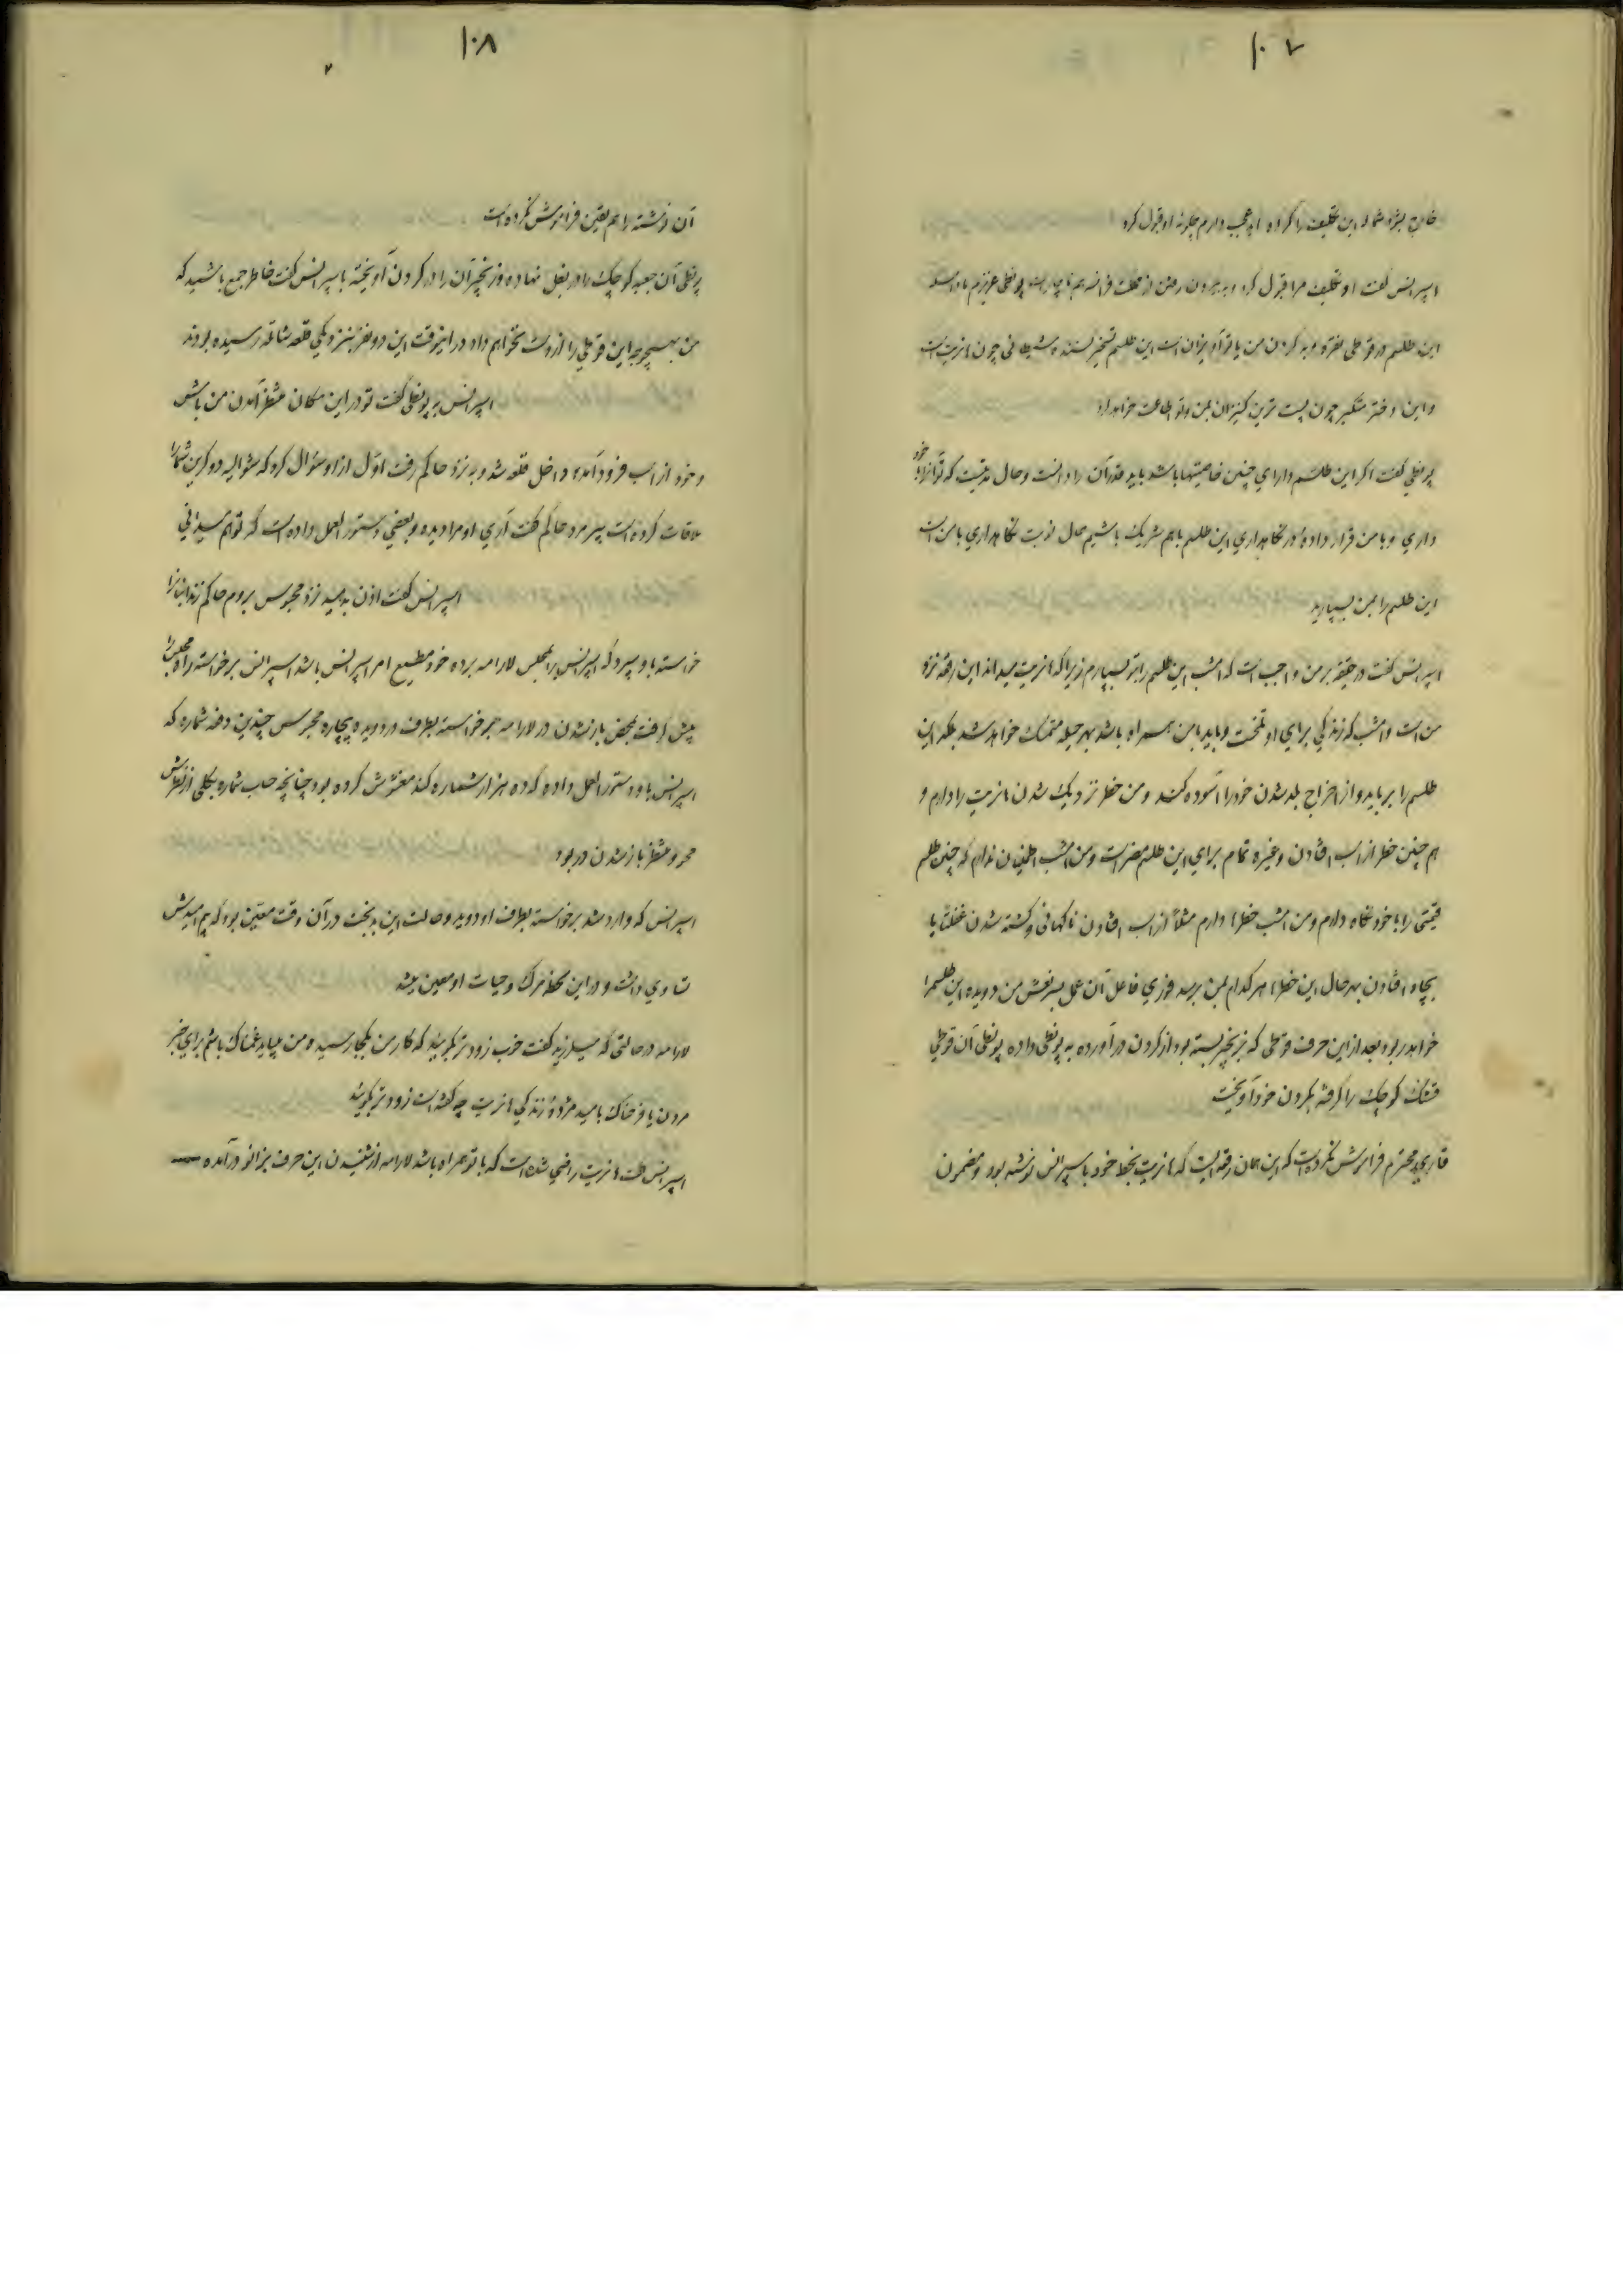 ١٠٧
خارج بشود شما که این تکلیف را کرده‌اید عجب دارم چگونه او قبول کرد
اسپرانس گفت او تکلیف مرا قبول کرد و به بیرون رفتن از مملکت فرانسه هم ناچار است پونطی عزیزم مادامیکه
این طلسم در قوطی نقره و به گردن من یا تو آویزان است این طلسم تسخیر کننده شیطانی چون هانریت است
و این دختر متکبر چون پست ترین کنیزان بمن و تو اطاعت خواهد کرد
پونطی گفت اگر این طلسم دارای چنین خاصیتها باشد باید قدر آن را دانست و حال مدتیست که تو آنرا با خود
داری و با من قرار داده در نگاهداری این طلسم با هم شریک باشیم حال نوبت نگاهداری با من است
این طلسم را بمن بسپارید
اسپرانس گفت در حقیقه بر من واجب است که امشب این طلسم را بتو بسپارم زیرا که هانریت میداند این رقعه نزد
من است و امشب که زندگی برای او تلخست و باید با من همراه باشد بهر حیله متمسک خواهد شد بلکه این
طلسم را برباید و از اخراج بلد شدن خود را آسوده کند و من خطر نزدیک شدن هانریت را دارم و
هم چنین خطر از اسب افتادن و غیره تمام برای این طلسم مضر است و من امشب اطمینان ندارم که چنین طلسم
قیمتی را با خود نگاه دارم و من امشب خطرها دارم مثلاً از اسب افتادن ناگهانی و کشته شدن غفلتاً یا
بچاه افتادن بهر حال این خطرها هر کدام بمن برسد فوری فاعل آن عمل بسر نعش من دویده این طلسم را
خواهد ربود بعد از این حرف قوطی که بزنجیر بسته بود از گردن در آورده به پونطی داده پونطی آن قوطی
قشنگ کوچک را گرفته بگردن خود آویخت
قاریء محترم فراموش نکرده است که این همان رقعه ایست که هانریت بخط خود با سپرانس نوشته بود و مضمون
١٠٨
آن نوشته را هم یقین فراموش نکرده است
پونطی آن جعبه کوچک را در بغل نهاده و زنجیر آن را در گردن آویخته با سپرانس گفت خاطر جمع باشید که
من بهیچوجه این قوطی را از دست نخواهم داد در اینوقت این دو نفر بنزدیکی قلعه شاتله رسیده بودند
اسپرانس بر پونطی گفت تو در این مکان منتظر آمدن من باش
و خود از اسب فرود آمده داخل قلعه شد و به نزد حاکم رفت اول از او سئوال کرد که شوالیه دو کرین شما را
ملاقات کرده است پیر مرد حاکم گفت آری او مرا دیده و بعضی دستور العمل داده است که تو هم میدانی
اسپرانس گفت اذن بدهید نزد محبوس بروم حاکم زندانبان را
خواسته باو سپرد که اسپرانس را بمجلس لارامه برده خود مطیع امر اسپرانس باشد اسپرانس برخواسته راه مجلس را
پیش گرفت بمحض باز شدن در لارامه برخواسته بطرف در دویده بیچاره محبوس چندین دفعه شماره که
اسپرانس باو دستور العمل داده که ده هزار شماره کند مغشوش کرده بود چنانچه حساب شماره بکلی از نظرش
محو و منتظر باز شدن در بود
اسپرانس که وارد شد برخواسته بطرف او دوید و حالت این بدبخت در آن وقت معین بود که بیم امیدش
تساوی داشت و در این لحظه مرگ و حیات او معین میشد
لارامه در حالتی که میلرزید گفت خوب زودتر بگوئید که کار من بکجا رسیده من میباید غمناک باشم برای خبر
مردن یا فرحناک باشید مژده زندگی هانریت چه گفته است زودتر بگوئید
اسپرانس گفت هانریت راضی شده است که با تو همراه باشد لارامه از شنیدن این حرف بزانو درآمده